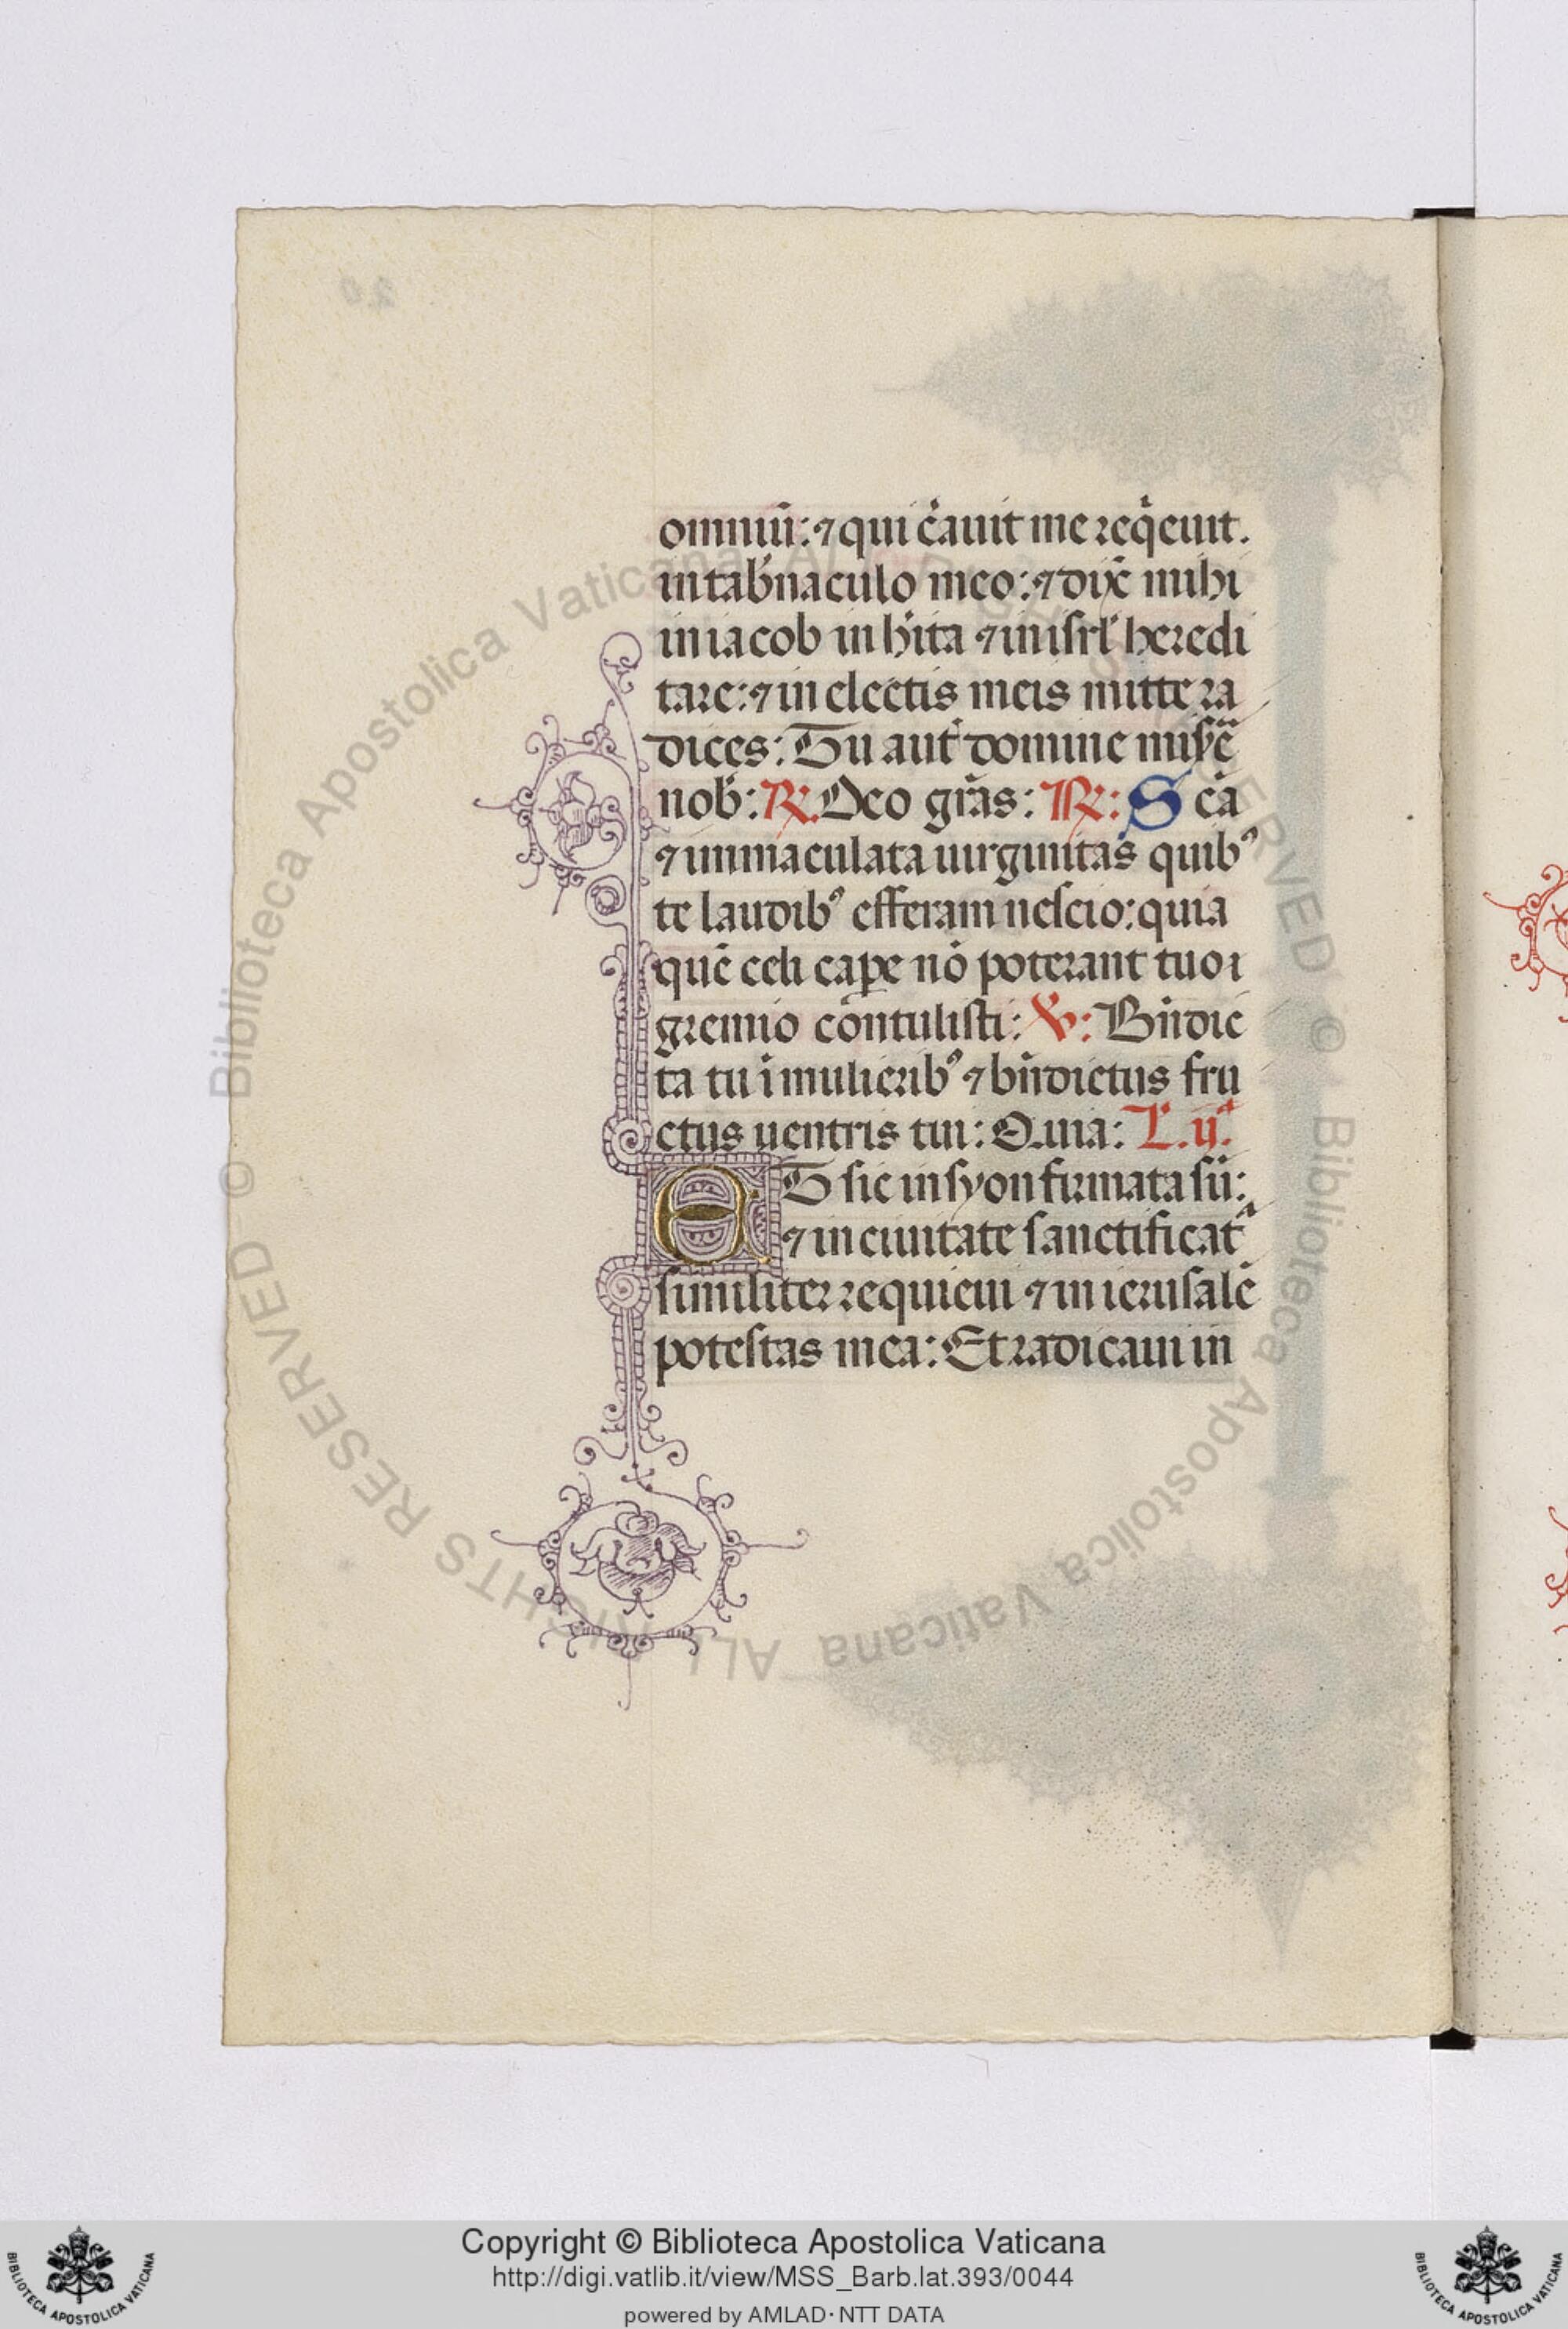 omniū: ⁊ qui c̓auit me req̓euit.
in tab̓naculo meo: ⁊ dix̄ mihi
in iacob inh̓ita ⁊ in isrl̓ heredi
tare: ⁊ in electis meis mitte ra
dices: Tu aut̓ domine mis̓e
nob̓: ℟. Deo gr̄as: ℟: S c̄a
⁊ immaculata uirginitas quibꝰ
te laudibꝰ efferam nescio: quia
quē celi caꝑe nō poterant tuo i
gremio contulisti: ℣: Bn̄dic
ta tu ī mulieribꝰ ⁊ bn̄dictus fru
ctus uentris tui: Quia: L̓. ijᵃ.
ET sic in syon firmata sū:
⁊ in ciuitate sanctificatᵃ
similiter requieui ⁊ in ierusalē
potestas mea: Et radicaui in
20
© Biblioteca Apostolica Vaticana ALL RIGHTS RESERVED
© Biblioteca Apostolica Vaticana ALL RIGHTS RESERVED
BIBLIOTECA APOSTOLICA VATICANA
Copyright © Biblioteca Apostolica Vaticana
http://digi.vatlib.it/view/MSS_Barb.lat.393/0044
powered by AMLAD·NTT DATA
BIBLIOTECA APOSTOLICA VATICANA